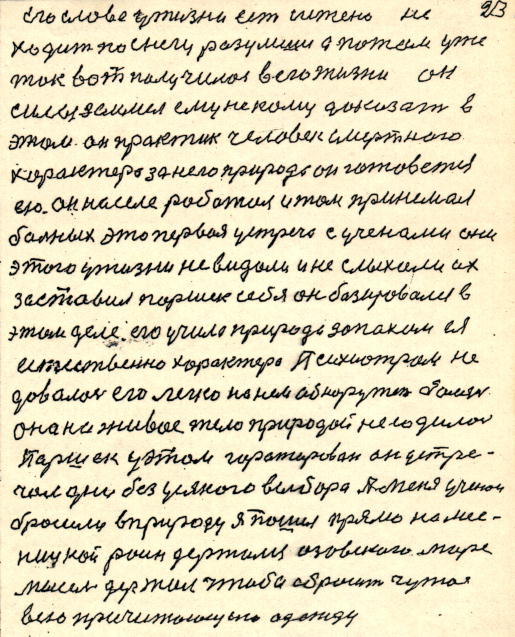 213
его слове у жизни ест ситено не
ходит по снегу разумиши а потом уже
ток вот получилос в его жизни он
силы земмел ему некому доказат в
этом он практик человек смертного
характера за него природа он готовется
ею. он на селе работол и там принемал
болных это первоя устреча с ученами они
этого у жизни не видоли и не слыхали их
заставил паршек себя он базировалса в
этом деле. его учила природа запахом ея
естественно характера Психиотрам не
довалос его легко на нем обнорутет
она на живое тело природой не годилос
Паршек у этом горотирован он устре-
чал дни без усякого вывбора А меня учени
бросили в природу я пошел прямо на мес-
ницкой роин держалса озовского маре
мысел держал чтоба сброит чужоя
всю причитоющую одежду